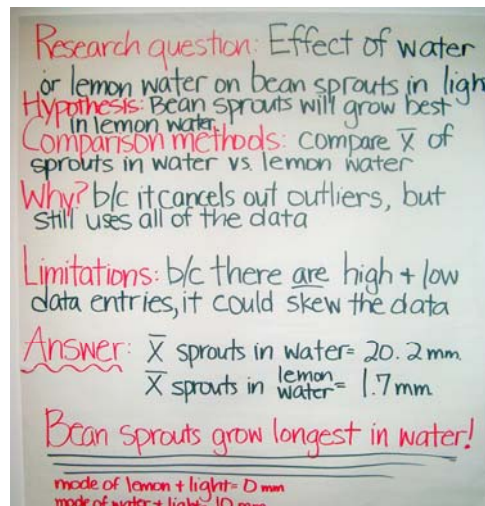 Research question: Effect of water
or lemon water on bean sprouts in light
Hypothesis: Bean sprouts will grow best
in lemon water.
Comparison methods: compare x̅ of
sprouts in water vs. lemon water
Why? b/c it cancels out outliers, but
still uses all of the data
Limitations: b/c there are high + low
data entries, it could skew the data
Answer: x̅ sprouts in water = 20.2 mm.
x̅ sprouts in lemon water = 1.7 mm
Bean sprouts grow longest in water!
mode of lemon + light = 0 mm
mode of water + light = 10 mm